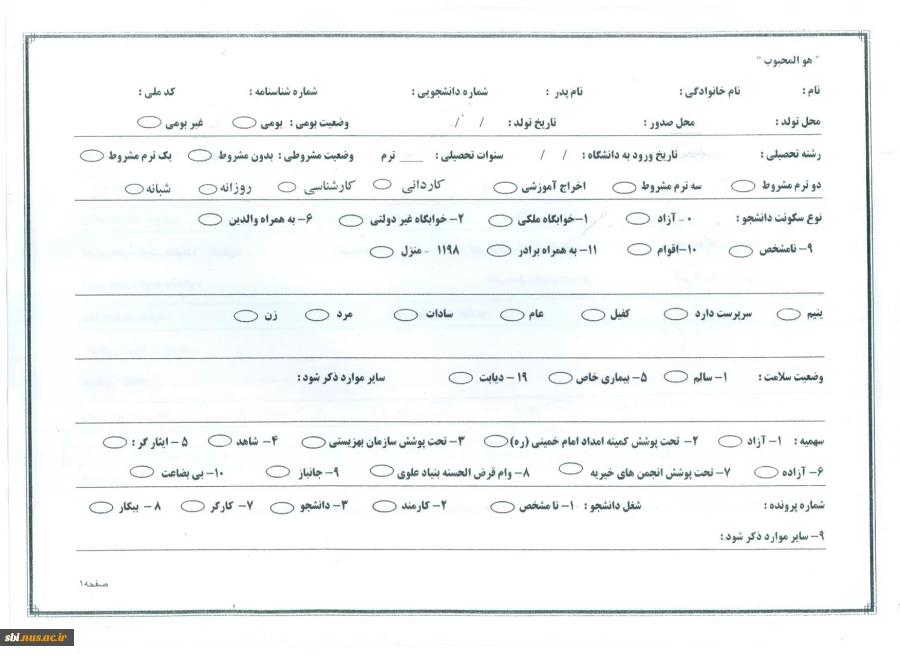 " هو المحبوب "
نام : نام خانوادگی : نام پدر : شماره دانشجویی : شماره شناسنامه : کد ملی :
محل تولد : محل صدور : تاریخ تولد : / / وضعیت بومی : بومی غیر بومی
رشته تحصیلی : تاریخ ورود به دانشگاه : / / سنوات تحصیلی : ___ ترم وضعیت مشروطی : بدون مشروط یک ترم مشروط
دو ترم مشروط سه ترم مشروط اخراج آموزشی کاردانی کارشناسی روزانه شبانه
نوع سکونت دانشجو : ۰- آزاد ۱-خوابگاه ملکی ۲- خوابگاه غیر دولتی ۶- به همراه والدین
۹- نامشخص ۱۰-اقوام ۱۱- به همراه برادر ۱۱۹۸ - منزل
یتیم سرپرست دارد کفیل عام سادات مرد زن
وضعیت سلامت : ۱- سالم ۵- بیماری خاص ۱۹- دیابت سایر موارد ذکر شود :
سهمیه : ۱- آزاد ۲- تحت پوشش کمیته امداد امام خمینی (ره) ۳- تحت پوشش سازمان بهزیستی ۴- شاهد ۵ - ایثار گر :
۶- آزاده ۷- تحت پوشش انجمن های خیریه ۸- وام قرض الحسنه بنیاد علوی ۹- جانباز ۱۰- بی بضاعت
شماره پرونده : شغل دانشجو : ۱- نا مشخص ۲- کارمند ۳- دانشجو ۷- کارگر ۸ - بیکار
۹- سایر موارد ذکر شود:
صفحه۱
sbi.nus.ac.ir